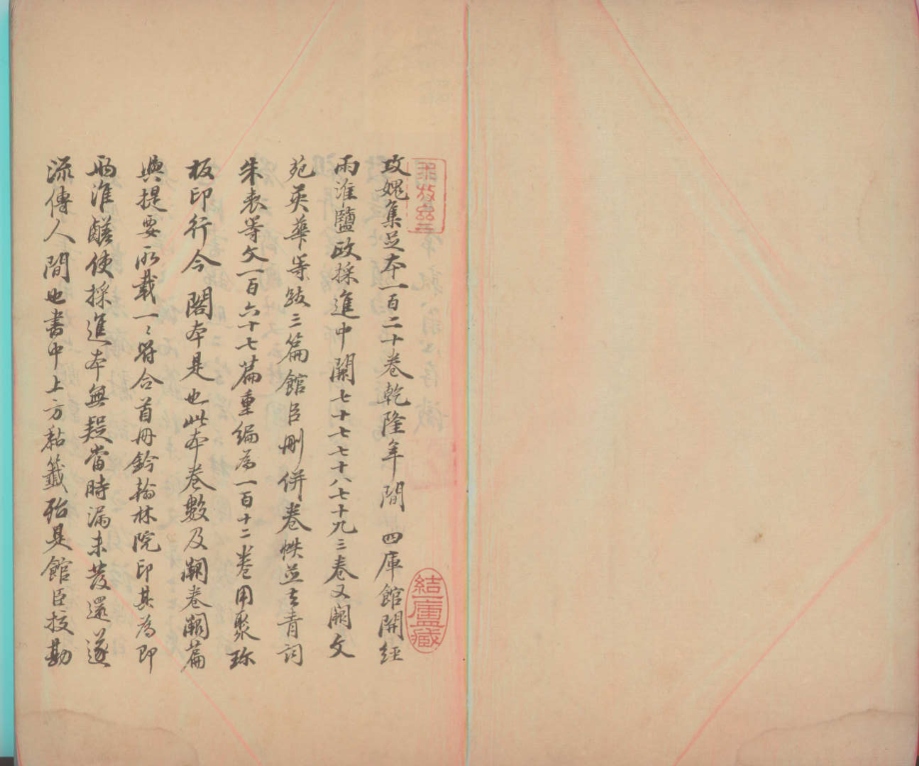 攻媿集足本一百二十卷乾隆年間　四庫館開經
兩淮鹽政採進中闕七十七七十八七十九三卷又闕文
苑英華等跋三篇館臣刪併卷帙並去青詞
朱表等文一百六十七篇重編爲一百十二卷用聚珍
板印行今　閣本是也此本卷數及闕卷闕篇
與提要所載一一符合首冊鈐翰林院印其為即
兩淮鹺使採進本無疑當時漏未發還遂
流傳人間也書中上方黏籤殆是館臣校勘
結一廬藏